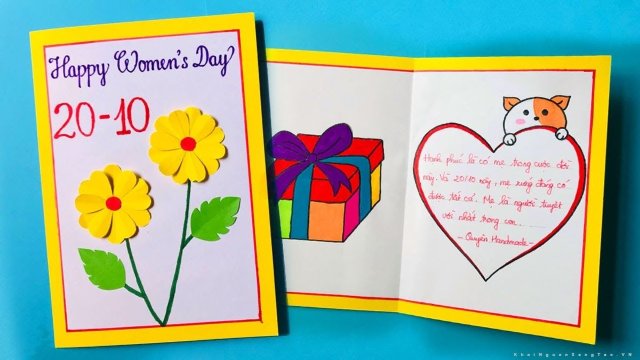 Happy Women's Day
20-10
Hạnh phúc là có mẹ trong cuộc đời
này. Và 20/10 này, mẹ xứng đáng có
được tất cả. Mẹ là người tuyệt
vời nhất trong con..........
- Quyên Handmade -
KhoiNguonSangTao.VN